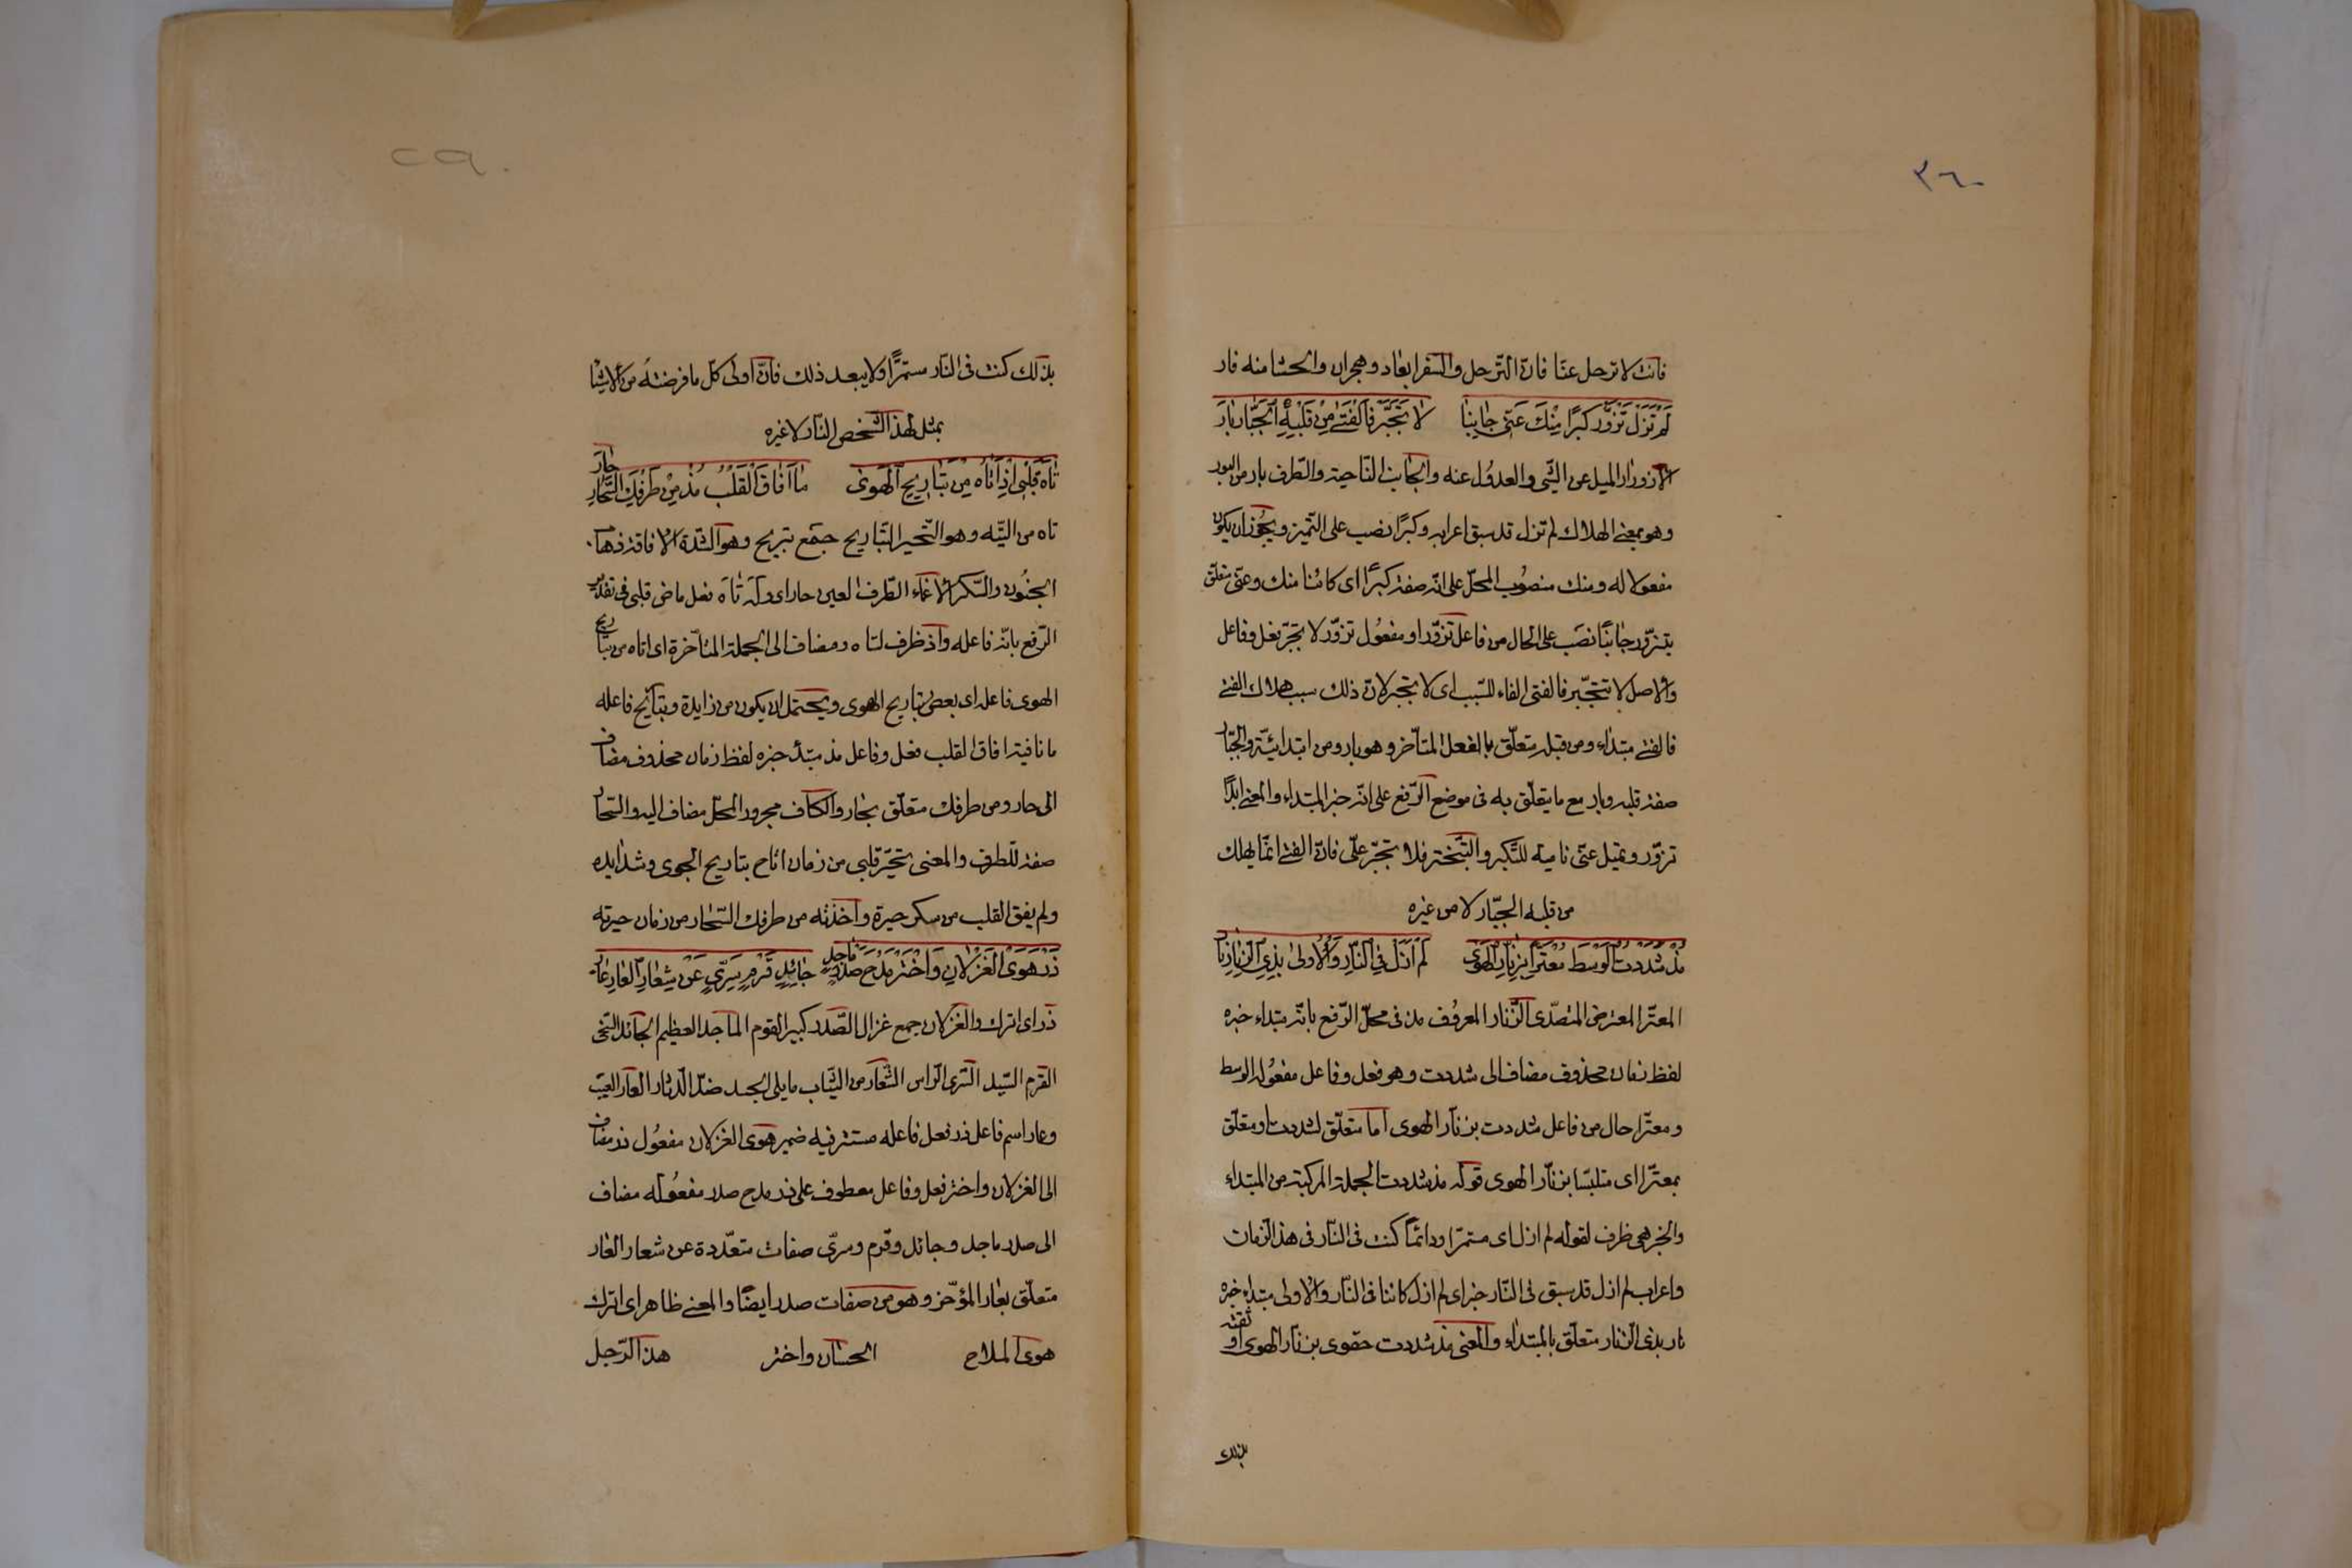 ٣٦٠
فانت لا ترحل عنّا فانّ الترّحل والسّفر ابعاد وهجران والحشا منه فار
لَمْ تَزَلْ تَزْوَرُّ كبرًا مِنْكَ عَنّى جَانِبًا لا تَجَبَّر فَالْفَتىٰ مِنْ قَبْلِهِ الْجَبَّار بَارَ
الازورار الميل عن الشّى والعدول عنه والجانب النّاحية والطّرف بار من البور
وهو بمعنى الهلاك لم تزل قد سبق اعرابه وكبرًا نصب على التّميز ويجُوز ان يكون
مفعولا له ومنك منصُوب المحلّ على انّه صفة كبرًا اى كائنا منك وعنّى متعلّق
بتزوّر جانبًا نصَب على الحال من فاعل تزوّر او مفعُول تزوّر لا تجبّر فعل وفاعل
والاصل لا تتجبّر فالفتى الفاء للسّبب اى لا تتجبر لانّ ذلك سبب هلاك الفتى
فالفتى مبتداء ومن قبله متعلّق بالفعل المتأخّر وهو بار ومن ابتدائيّة والجبّار
صفة قلبه وبار مع ما يتعلّق به فى موضع الرّفع على انّه خبر المبتداء والمعنى ابدًا
تزوّر وتميل عنّى ناحية للتّكبر والتّبختر فلا تتجبّر علّى فانّ الفتى انّما يهلك
من قبله الجبّار لا من غيره
مذ شَدَدْتُ الْوَسْطَ مُعْتَرًّا بِزنّارِ الْهَوىٰ لَمْ اَزَلْ فِي النَّارِ وَالْاُولىٰ بِذِي الزّنّارِ نار
المعترّ المعترض المتصدّى الزّنّار المعرُوف مذ فى محلّ الرّفع بانّه مبتداء خبره
لفظ زمان محذوف مضاف الى شددت وهو فعل وفاعل مفعُوله الوسط
ومعترّا حال من فاعل شددت بزنّار الهوى امّا متعلّق لشددت او متعلّق
بمعترّا اى متلبّسا بزنّار الهوى قوله مذ شددت الجملة المركبة من المبتداء
والخبر هى ظرف لقوله لم ازل اى مستمرّا ودائمًا كنت فى النّار فى هذا الزمان
واعراب لم ازل قد سبق فى النّار خبر اى لم ازل كائنا فى النّار والاولى مبتداء خبره
نار بذى الزنّار متعلّق بالمبتداء والمعنى مذ شددت حقوى بزنّار الهوى او
بذلك
٢٩٠
بذلك كنت فى النّار مستمرًّا ولا يبعد ذلك فانّ اولى كلّ ما فرضته من الاشيا
بمثل هذا الشّخص النّار لا غيره
تَاهَ قَلْبِى اِذْ اَتَاهُ مِنْ تَبَارِيحِ الْهَوىٰ مَا اَفَاقَ الْقَلْبُ مُذْ مِنْ طَرْفِكَ السَّحَّارِ حَارَ
تاه من التّيه وهو التّحير التّباريح جمع تبريح وهو الشّدة الافاقة ذهاب
الجنُون والسّكر الاغماء الطّرف العين حار اى وله تاهَ فعل ماض قلبى فى تقدير
الرّفع بانّه فاعله واذ ظرف لتاه ومضاف الى الجملة المتأخّرة اى اتاه من تباريح
الهوى فاعله اى بعض تباريح الهوى ويحتمل ان يكون من زايدة وتباريح فاعله
ما نافية افاق القلب فعل وفاعل مذ مبتدأ خبره لفظ زمان محذوف مضاف
الى حار ومن طرفك متعلّق بحار والكاف مجرور المحلّ مضاف اليه والسّحار
صفة للطرف والمعنى تحيّر قلبى من زمان اتاح تباريح الجوى وشدايده
ولم يفق القلب من سكر حيرة واخذته من طرفك السّحار من زمان حيرته
ذَرْ هَوَى الْغَزْلانِ وَاخْتَرْ مَدْحَ صَدْرٍ مَاجِدٍ جَائِدٍ قَرْمٍ سَرِىٍّ عَنْ شِعَارِ الْعَارِ عَار
ذر اى اترك والغزلان جمع غزال الصّدر كبير القوم الماجد العظيم الجائد السّخى
القرم السّيد السّرى الرّاس الشّعار من الثّياب ما يلى الجسد ضدّ الدّثار العار العيب
وعار اسم فاعل ذر فعل فاعله مستتر فيه ضمير هوى الغزلان مفعُول ذر مضاف
الى الغزلان واختر فعل وفاعل معطوف على ذر مدح صدر مفعُوله مضاف
الى صدر ماجد وجائد وقرم وسرىّ صفات متعّددة عن شعار العار
متعلّق بعار المؤخّر وهو من صفات صدر ايضًا والمعنى ظاهر اى اترك
هوى الملاح الحسان واختر هذا الرّجل